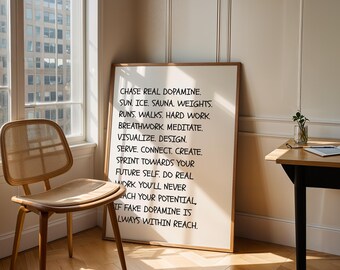 CHASE REAL DOPAMINE.
SUN. ICE. SAUNA. WEIGHTS.
RUNS. WALKS. HARD WORK.
BREATHWORK. MEDITATE.
VISUALIZE. DESIGN.
SERVE. CONNECT. CREATE.
SPRINT TOWARDS YOUR
FUTURE SELF. DO REAL
WORK. YOU'LL NEVER
REACH YOUR POTENTIAL,
IF FAKE DOPAMINE IS
ALWAYS WITHIN REACH.